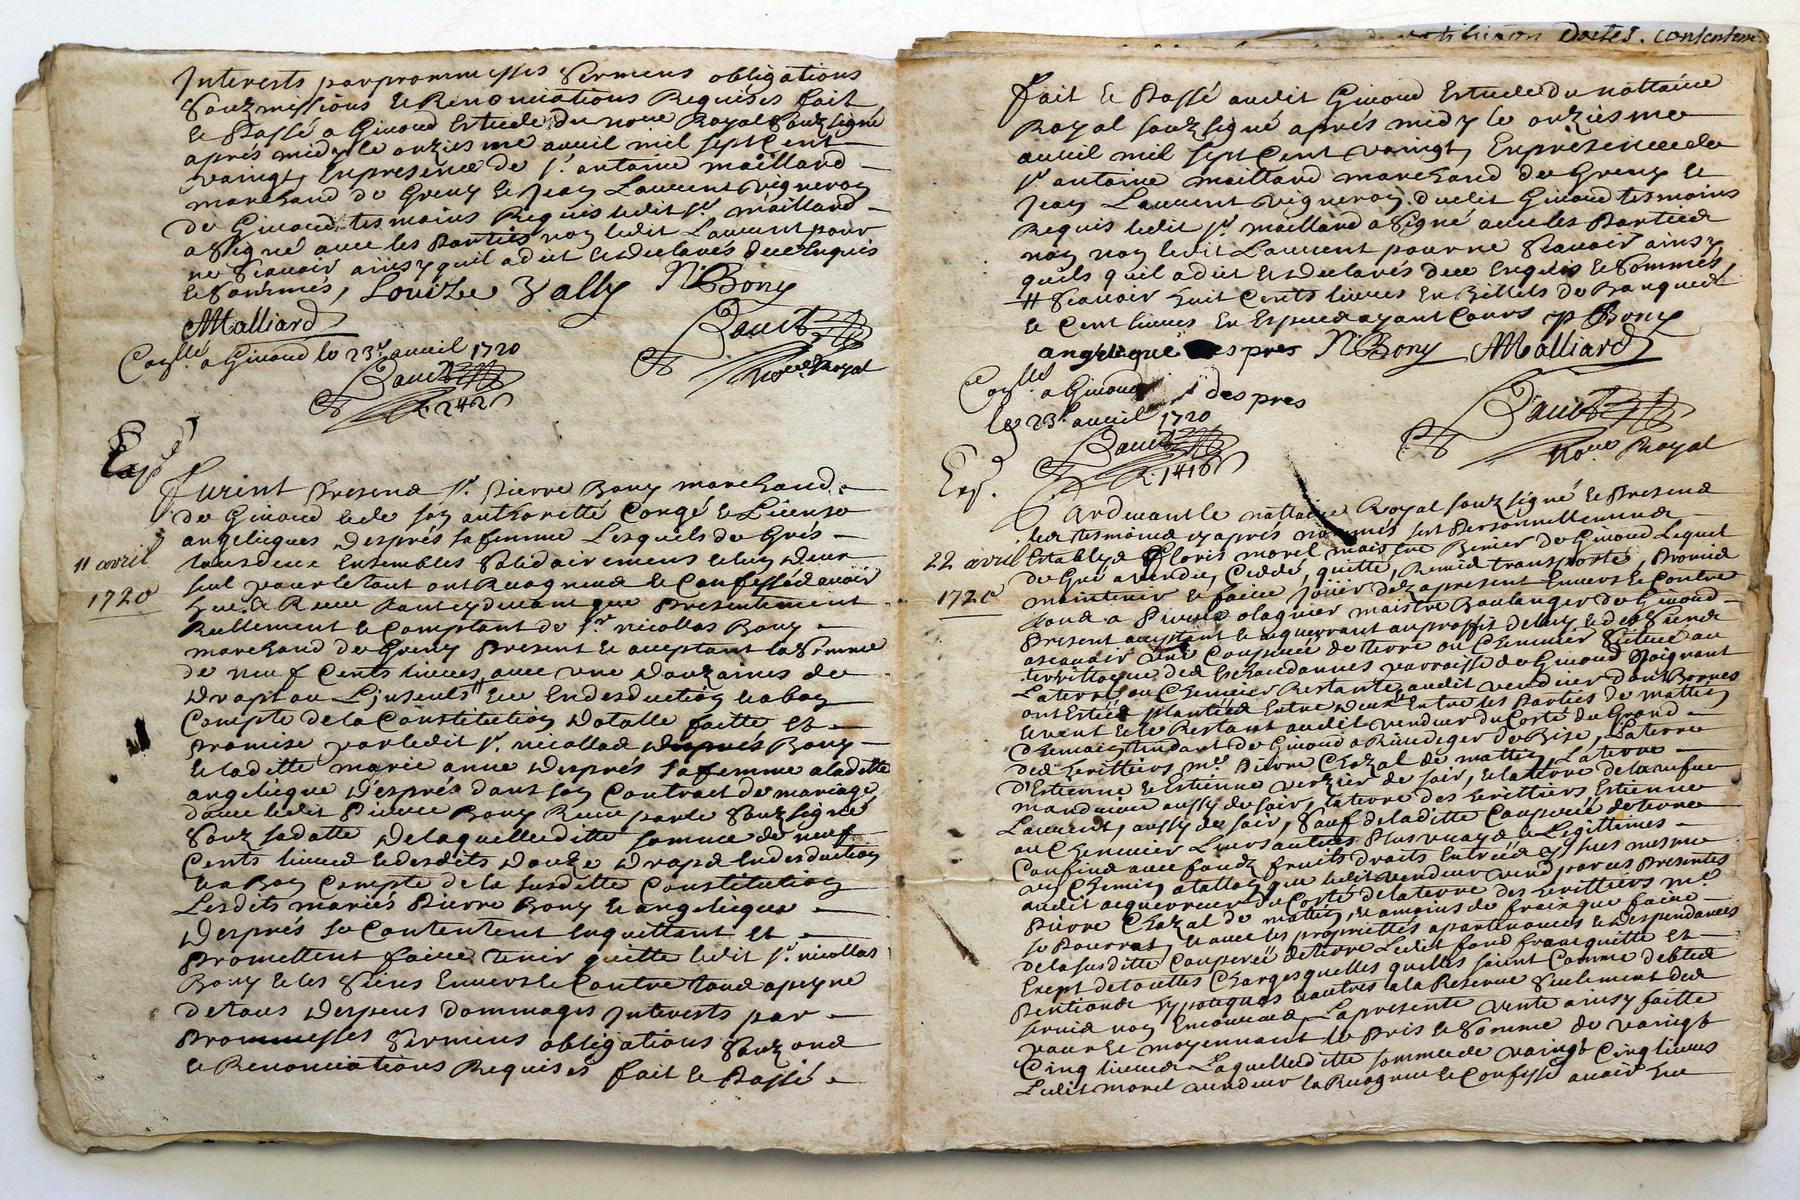 Interests par prommesses sermens obligations
soubzmissions et Renonciations Requises fait
et Passé a Givord Estude du nore Royal soubzsigné
aprés midy le onziesme avvil mil sept Cent
vaingt, En presence de sr. antoine maillard
marchand de Greny et Jean Laurent vigneron
de Givord tesmoins Requis ledit sr. maillard
a signé avec les Parties non ledit Laurent pour
ne scavoir ainsy quil a dit et declaré deue Enquis
et sommés, Louize Vally N Bony
AMalliard
Conllé. a Givord le 23e. avvil 1720
nore Royal
R 242
Exp.é
furent Presens sr. Pierre Bony marchand
de Givord et de son authoritté Congé et License
angelicque Desprès sa femme Lesquels de Gré
tous deux Ensembles solidairement et lun deux
seul pour le tout ont Recognus et Confessé avoir
heu et Receu tant cy devant que Presentement
Reellement et Comptant de sr. nicollas Bony
marchand de Greny Present et acceptant la somme
de neuf Cents livres, avec une Douzaines de
Draps ou Linseuls En Endesduction et a bon
Compte de la Constitution Dotalle faitte et
Promise par ledit sr. nicollas Bony
et laditte marie anne Desprès sa femme a laditte
angelicque Desprès dans son Contrat de mariage
avec ledit Pierre Bony Receu par le soubzsigné
soubz sa datte De laquelle ditte somme de neuf
Cents livres et desdits Douze Draps Endesduction
et a Bon Compte de la susditte Constitution
Lesdits mariés Pierre Bony et angelicque
Desprès se Contentent En quittant et
Promettent faire tenir quitte ledit sr. nicollas
Bony et les siens Envers et Contre tous a peyne
de tous Despens dommages Interests par
Prommesses sermens obligations soubz
et Renonciations Requises fait et Passé
11 avril
1720
Fait et Passé audit Givord Estude du nottaire
Royal soubzsigné aprés midy le onziesme
avvil mil sept Cent vaingt, En presence de
sr antoine maillard marchand de Greny et
Jean Laurent vigneron dudit Givord tesmoins
Requis ledit sr. maillard a signé avec les Parties
non ledit Laurent pour ne scavoir ainsy
quil a dit et declaré deue Enquis et sommés,
scavoir huit Cents livres En Billets de Banque
et Cent livres En Espece ayant Cours p Bony
angelique des pres N Bony AMalliard
Conllé a Givord
des pres
le 23e avvil 1720
R 1416
nore Royal
Exp.
Pardevant le nottaire Royal soubzsigné et Presens
les tesmoins cy aprés nommés fut Personnellement
Estably Cloris morel maistre de Givord Lequel
de Gré a vendu, Ceddé, quitté, Remis transporté, Promis
maintenir et faire jouir dez apresent Envers et Contre
tous a maistre Boulanger de Givord
Present acceptant et aqueurant au proffit de luy et des siens
ascavoir une Couperée de terre ou Chenevier scittué au
territtoire des Eschandannes parroisse de Givord Joignant
La terre ou Chenevier Restante audit vendeur dont Bornes
ont Esté plantées Entre deux Entre les Parties de mattin
et vent et le Restant audit vendeur du Costé du Grand
Chemin tendant de Givord a de Bise, La terre
des herittiers me. Pierre Chazal de mattin, La terre
d'Estienne et Estienne verzier de soir, et la terre de la vefve
aussy de soir, la terre des herittiers Estienne
Laurent, aussy de soir, sauf de laditte Couperée de terre
ou Chenevier Leurs autres Plus vrays et Legittimes
Confins avec fondz fruits droits Entrées
audit acquereur du Costé de la terre des herittiers me.
Pierre Chazal de mattin, et a moins de frais que faire
se Pourrat, et avec les proprietés apartenances et Despendances
de la susditte Couperée de terre Ledit fond franc quitte et
Exept de touttes Charges quelles quelles soient Comme debtes
Pentions hypoteques et autres a la Reserve seulement des
servis non Encourus, La presente vente ainsy faitte
pour et moyennant le Pris et somme de vaingt
Cinq livres Laquelle ditte somme de vaingt Cinq livres
Ledit morel vendeur la Recognu et Confessé avoir heu
22 avril
1720